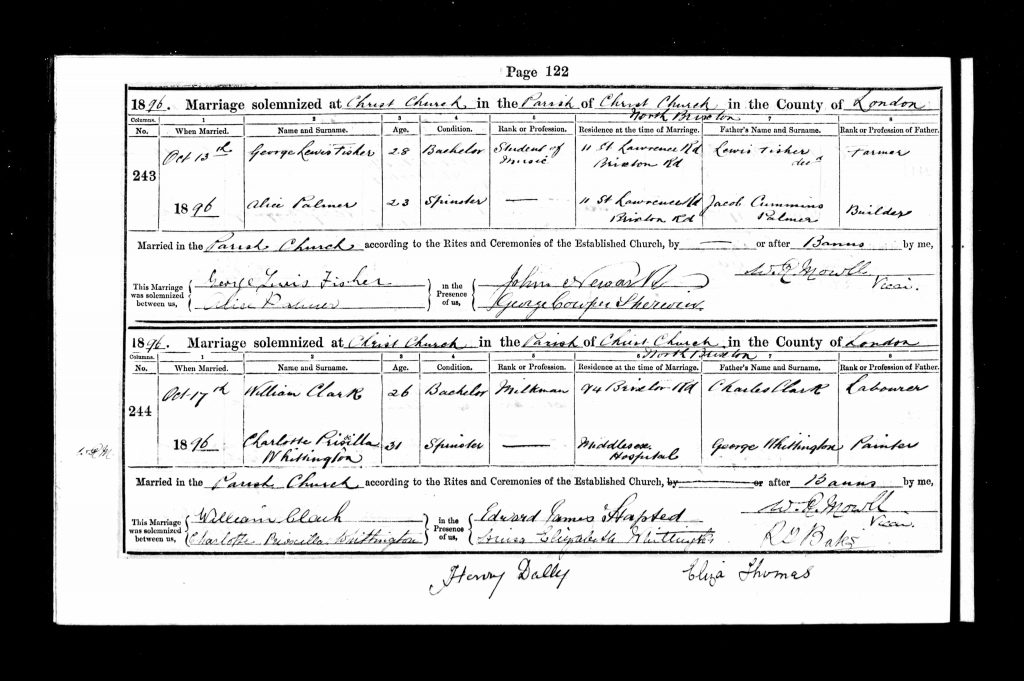 Page 122
1896. Marriage solemnized at Christ Church in the Parish of Christ Church in the County of London
North Brixton
Columns. 1 2 3 4 5 6 7 8
No. When Married. Name and Surname. Age. Condition. Rank or Profession. Residence at the time of Marriage. Father's Name and Surname. Rank or Profession of Father.
243 Oct 13th George Lewis Fisher 28 Bachelor Student of Music 11 St Lawrence Rd Brixton Rd Lewis Fisher decd Farmer
1896 Alice Palmer 23 Spinster — 11 St Lawrence Rd Brixton Rd Jacob Cummins Palmer Builder
Married in the Parish Church according to the Rites and Ceremonies of the Established Church, by — or after Banns by me,
W. R. Mowll
Vicar.
This Marriage was solemnized between us, George Lewis Fisher
Alice Palmer
in the Presence of us, John
George Cowper Sherwin
1896. Marriage solemnized at Christ Church in the Parish of Christ Church in the County of London
North Brixton
Columns. 1 2 3 4 5 6 7 8
No. When Married. Name and Surname. Age. Condition. Rank or Profession. Residence at the time of Marriage. Father's Name and Surname. Rank or Profession of Father.
244 Oct 17th William Clark 26 Bachelor Milkman 94 Brixton Rd Charles Clark Labourer
1896 Charlotte Priscilla Whittington 31 Spinster — Middlesex Hospital George Whittington Painter
Married in the Parish Church according to the Rites and Ceremonies of the Established Church, by or after Banns by me,
W. R. Mowll
Vicar.
This Marriage was solemnized between us, William Clark
Charlotte Priscilla Whittington
in the Presence of us, Edward James Hapted
Louisa Elizabeth Whittington
Henry Dally Eliza Thomas